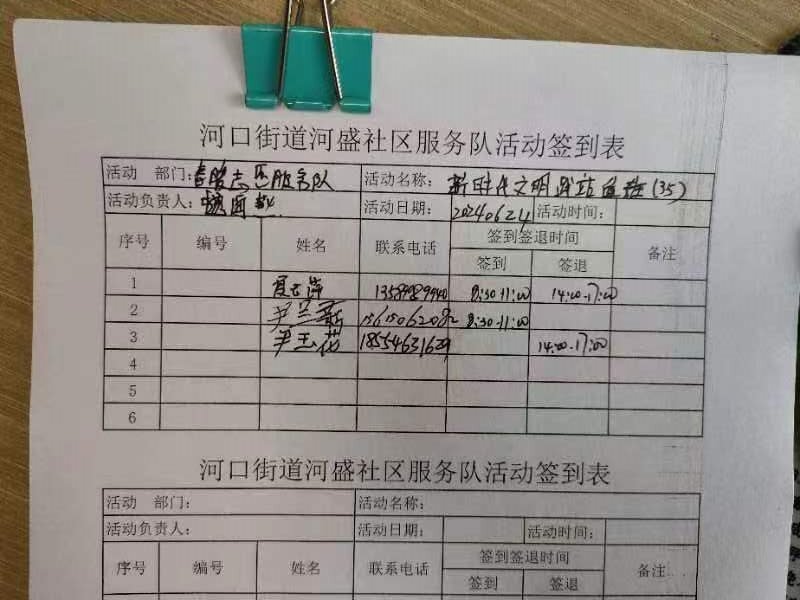 河口街道河盛社区服务队活动签到表
活动 部门：服务队 活动名称：新时代文明 (35)
活动负责人： 活动日期：20240624 活动时间：
序号 编号 姓名 联系电话 签到签退时间 备注
签到 签退
1 13589989940 8:30-11:00 14:00-17:00
2 尹兰新 15615062082 8:30-11:00
3 尹玉花 18554631629 14:00-17:00
4
5
6
河口街道河盛社区服务队活动签到表
活动 部门： 活动名称：
活动负责人： 活动日期： 活动时间：
序号 编号 姓名 联系电话 签到签退时间 备注
签到 签退